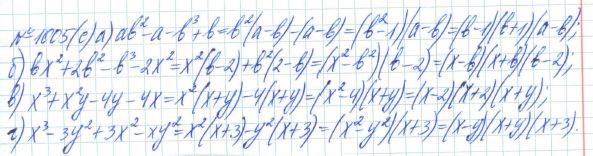 № 1005 (с) а) ab² - a - b³ + b = b²(a-b) - (a-b) = (b² - 1)(a-b) = (b-1)(b+1)(a-b);
б) bx² + 2b² - b³ - 2x² = x²(b-2) + b²(2-b) = (x² - b²)(b-2) = (x-b)(x+b)(b-2);
в) x³ + x²y - 4y - 4x = x²(x+y) - 4(x+y) = (x² - 4)(x+y) = (x-2)(x+2)(x+y);
г) x³ - 3y² + 3x² - xy² = x²(x+3) - y²(x+3) = (x² - y²)(x+3) = (x-y)(x+y)(x+3).